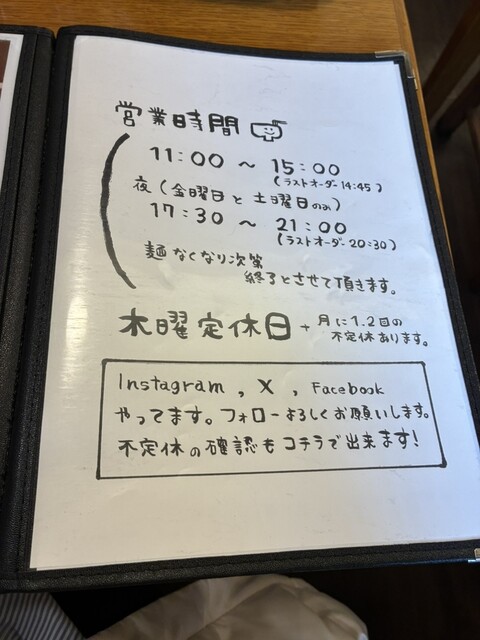 営業時間
11:00 ～ 15:00
(ラストオーダー 14:45)
夜 (金曜日と土曜日のみ)
17:30 ～ 21:00
(ラストオーダー 20:30)
麺なくなり次第
終了とさせて頂きます。
木曜定休日 + 月に1.2回の
不定休あります。
Instagram , X , Facebook
やってます。フォローよろしくお願いします。
不定休の確認もコチラで出来ます!